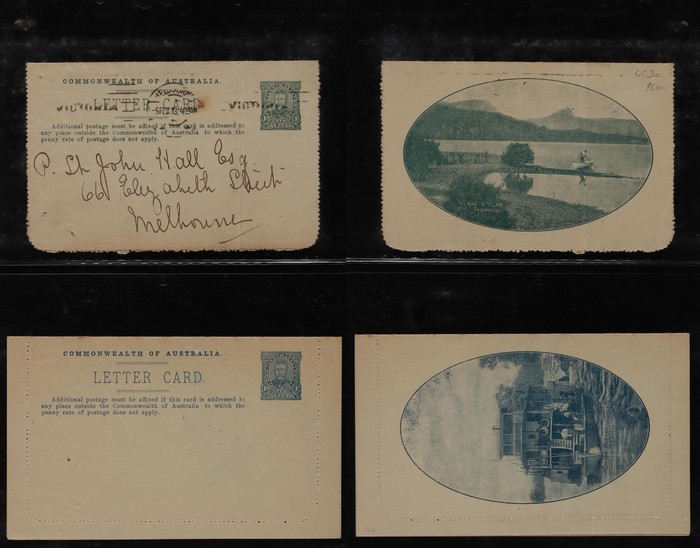 COMMONWEALTH OF AUSTRALIA.
LETTER CARD.
Additional postage must be affixed if this card is addressed to
any place outside the Commonwealth of Australia to which the
penny rate of postage does not apply.
P. St John Hall Esq.
66 Elizabeth Street
Melbourne
950-
COMMONWEALTH OF AUSTRALIA.
LETTER CARD.
Additional postage must be affixed if this card is addressed to
any place outside the Commonwealth of Australia to which the
penny rate of postage does not apply.